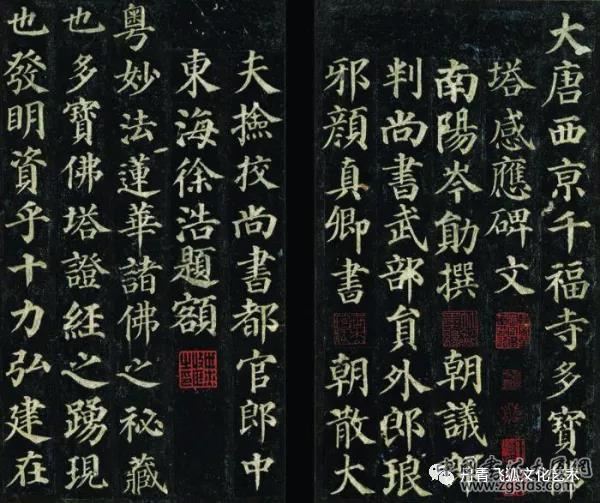 大唐西京千福寺多寶
塔感應碑文
南陽岑勛撰 朝議郎
判尚書武部員外郎琅
邪顏真卿書 朝散大
夫撿挍尚書都官郎中
東海徐浩題額
粵妙法蓮華諸佛之秘藏
也多寶佛塔證經之踴現
也發明資乎十力弘建在
丹青飞狐文化艺术